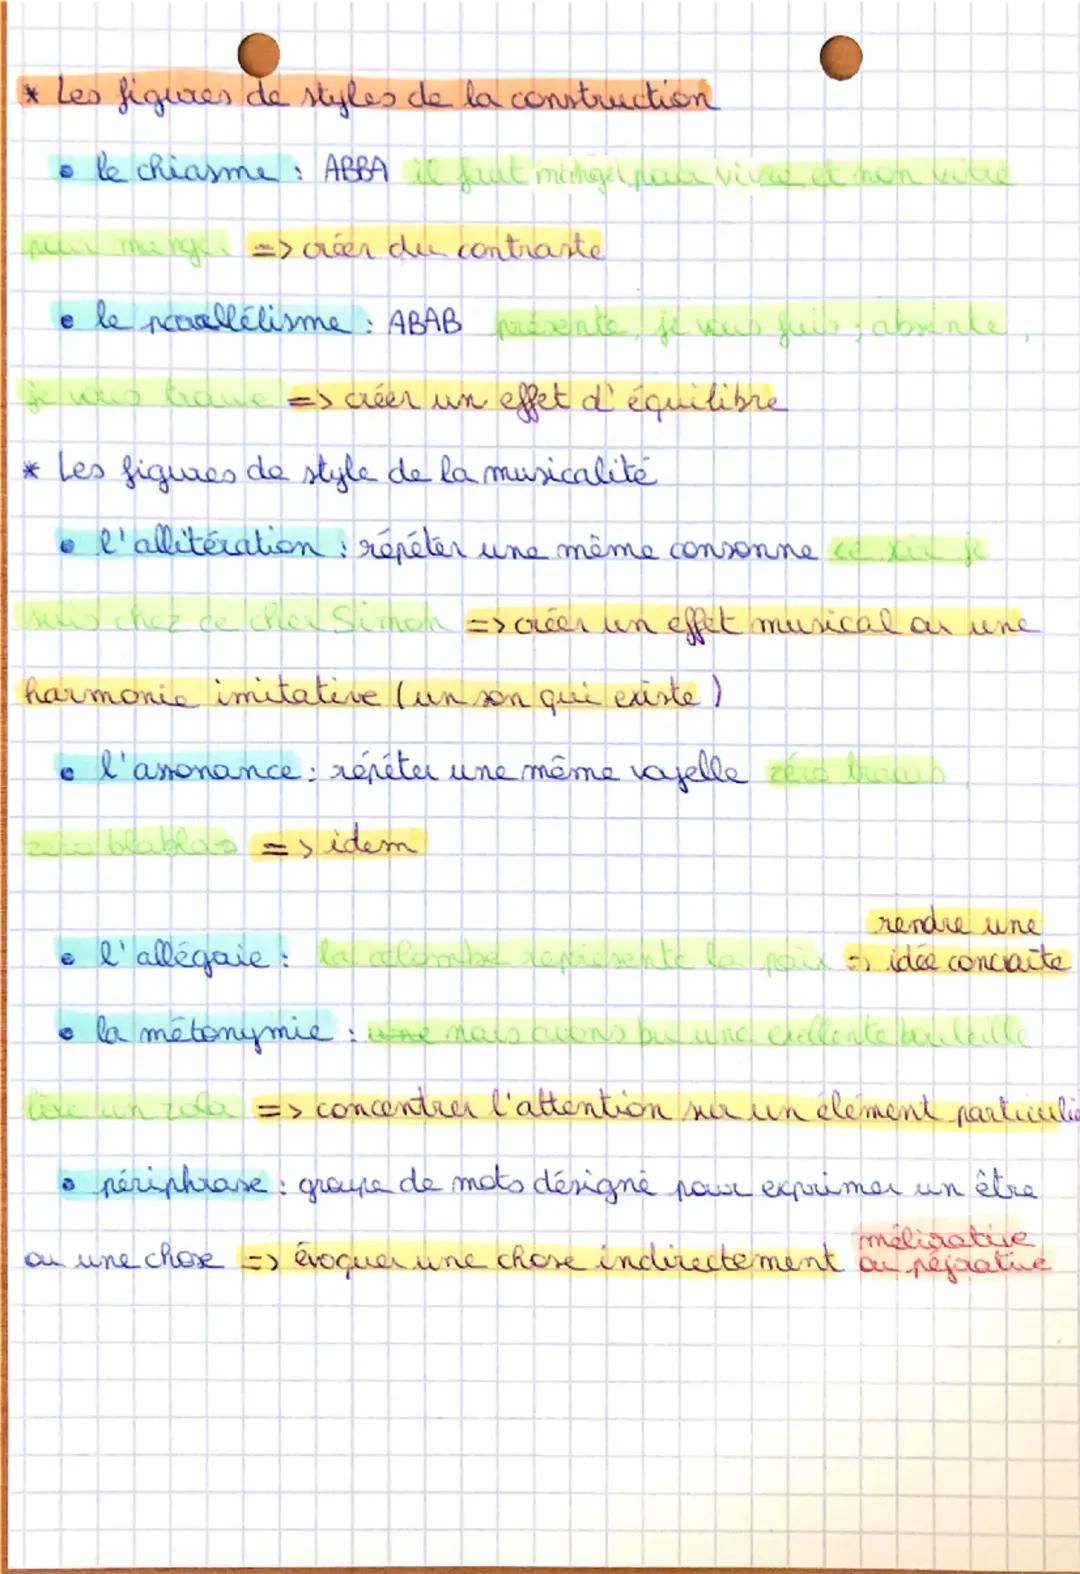 * Les figures de styles de la construction
• le chiasme : ABBA il faut manger pour vivre et non vivre
pour manger => créer du contraste
• le parallélisme : ABAB présente, je vous fuis ; absente,
je vous trouve => créer un effet d'équilibre
* Les figures de style de la musicalité
• l'allitération : répéter une même consonne ce soir je
suis chez ce cher Simon => créer un effet musical ou une
harmonie imitative (un son qui existe)
• l'assonance : répéter une même voyelle zéro tracas
zéro blablas => idem
rendre une
• l'allégorie : la colombe représente la paix => idée concraite
• la métonymie : nous avons bu une exellente bouteille
lire un zola => concentrer l'attention sur un élement particulie
• périphrase : groupe de mots désigné pour exprimer un être
méliorative
ou une chose => évoquer une chose indirectement ou péjorative